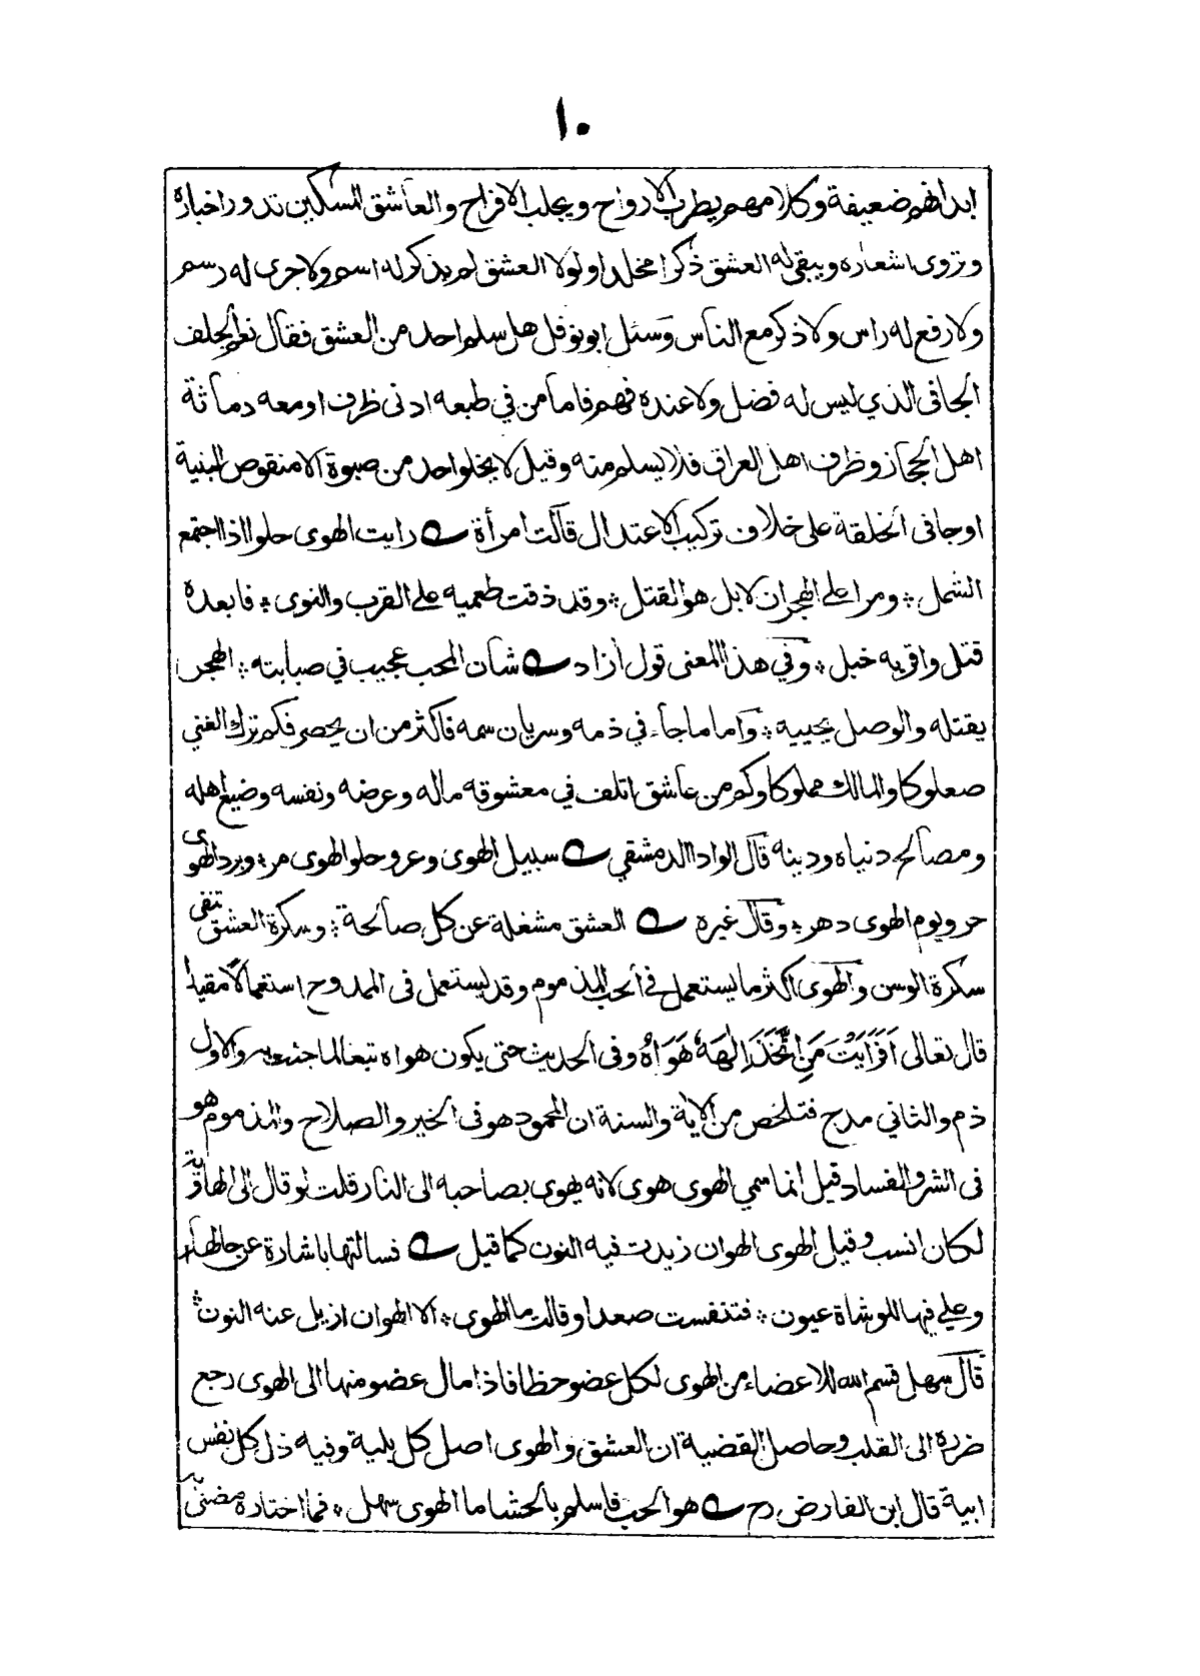 ١٠
ابدانهم ضعيفة وكلامهم يطرب الارواح ويجلب الافراح والعاشق المسكين تدور اخباره
وتروى اشعاره ويبقى له العشق ذكرا مخلدا ولولا العشق لم يذكر له اسم ولا جرى له رسم
ولا رفع له راس ولا ذكر مع الناس وسئل ابو نوفل هل سلم احد من العشق فقال نعم الجلف
الجافي الذي ليس له فضل ولا عنده فهم فاما من في طبعه ادنى ظرف او معه دماثة
اهل الحجاز وظرف اهل العراق فلا يسلم منه وقيل لا يخلو احد من صبوة الا منقوص البنية
او جافى الخلقة على خلاف تركيب الاعتدال قالت امرأة رايت الهوى حلوا اذا اجتمع
الشمل ؞ ومرا على الهجران لا بل هو القتل ؞ وقد ذقت طعميه على القرب والنوى ؞ فابعده
قتل واقربه خبل ؞ وفي هذا المعنى قول ازاد شان المحب عجيب في صبابته ؞ الهجر
يقتله والوصل يحييه ؞ واما ما جاء في ذمه وسريان سمه فاكثر من ان يحصر فكم ترك الغني
صعلوكا والمالك مملوكا وكم من عاشق اتلف في معشوقه ماله وعرضه ونفسه وضيع اهله
ومصالح دنياه ودينه قال الواوا الدمشقي سبيل الهوى وعر وحلو الهوى مر ؞ وبرد الهوى
حر ويوم الهوى دهر ؞ وقال غيره العشق مشغلة عن كل صالحة ؞ وسكرة العشق تنفى
سكرة الوسن والهوى اكثر ما يستعمل في الحب المذموم وقد يستعمل فى الممدوح استعمالا مقيدا
قال تعالى اَفَرَاَيْتَ مَنِ اتَّخَذَ اِلٰهَهٗ هَوَاهُ وفى الحديث حتى يكون هواه تبعا لما جئت به والاول
ذم والثاني مدح فتلخص من الاية والسنة ان المحمود هو فى الخير والصلاح والمذموم هو
فى الشر والفساد قيل انما سمي الهوى هوى لانه يهوى بصاحبه الى النار قلت لو قال الى الهاوية
لكان انسب وقيل الهوى الهوان زيدت فيه النون كما قيل فسالتها باشارة عن حالها ؞
وعلي فيها للوشاة عيون ؞ فتنفست صعدا وقالت ما الهوى ؞ الا الهوان ازيل عنه النون ؞
قال سهل قسم الله للاعضاء من الهوى لكل عضو حظا فاذا مال عضو منها الى الهوى رجع
ضرره الى القلب وحاصل القضية ان العشق والهوى اصل كل بلية وفيه ذل كل نفس
ابية قال ابن الفارض رح هو الحب فاسلم بالحشا ما الهوى سهل ؞ فما اختاره مضنى به